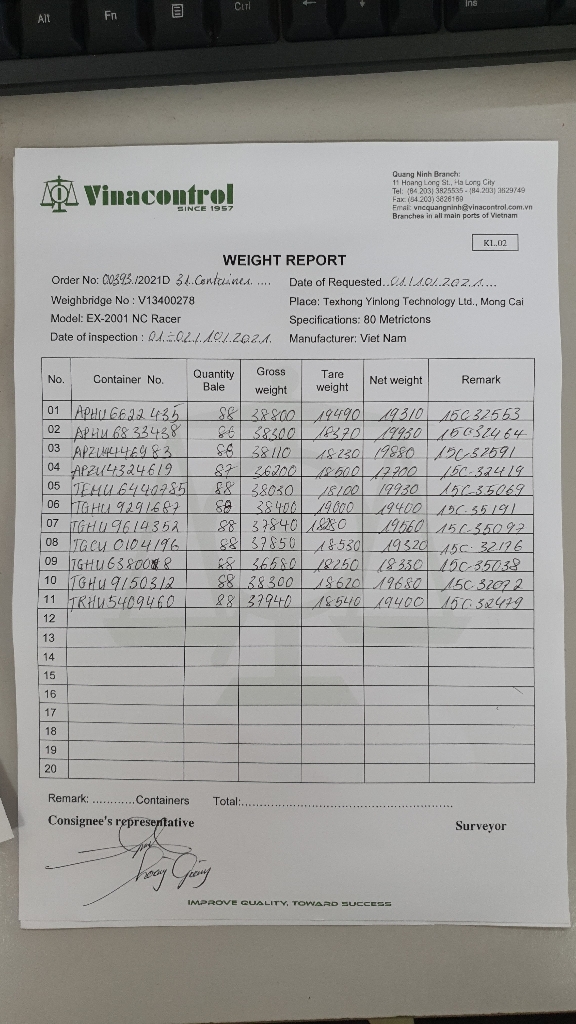 Alt
Fn
Ctrl
Ins
Vinacontrol
SINCE 1957
Quang Ninh Branch:
11 Hoang Long St., Ha Long City
Tel: (84.203) 3825535 - (84.203) 3629749
Fax: (84.203) 3826169
Email: vncquangninh@vinacontrol.com.vn
Branches in all main ports of Vietnam
KL.02
WEIGHT REPORT
Order No: 00393/2021D 31 Container .... Date of Requested..01/101.2021....
Weighbridge No : V13400278 Place: Texhong Yinlong Technology Ltd., Mong Cai
Model: EX-2001 NC Racer Specifications: 80 Metrictons
Date of inspection : 01-02/101.2021. Manufacturer: Viet Nam
No. Container No. Quantity Bale Gross weight Tare weight Net weight Remark
01 APHU6622435 88 38800 19490 19310 15C32553
02 APHU6833438 86 38300 18370 19930 15C32464
03 APZU4446983 86 38110 18230 19880 15C-32591
04 APZU4324619 87 36200 18500 17700 15C-32419
05 TEMU6440785 88 38030 18100 19930 15C-35069
06 TGHU9291687 88 38400 19000 19400 15C-35191
07 TGHU9614352 88 37840 18280 19560 15C-35097
08 TGCU0104196 88 37850 18530 19320 15C-32176
09 88 36580 18250 18330 15C-35038
10 TGHU9150312 88 38300 18620 19680 15C-32072
11 TRHU5409460 88 37940 18540 19400 15C-32479
12
13
14
15
16
17
18
19
20
Remark: ............Containers Total:..........................................................
Consignee's representative Surveyor
IMPROVE QUALITY, TOWARD SUCCESS